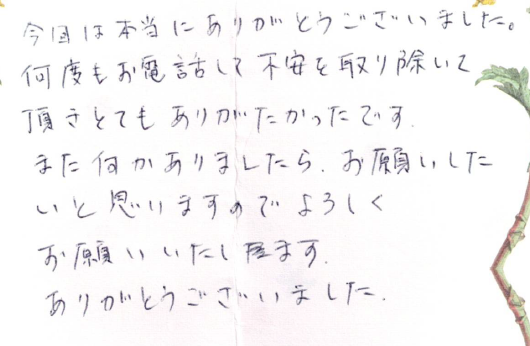 今回は本当にありがとうございました。
何度もお電話して不安を取り除いて
頂きとてもありがたかったです.
また何かありましたら、お願いした
いと思いますのでよろしく
お願いいたします.
ありがとうございました.